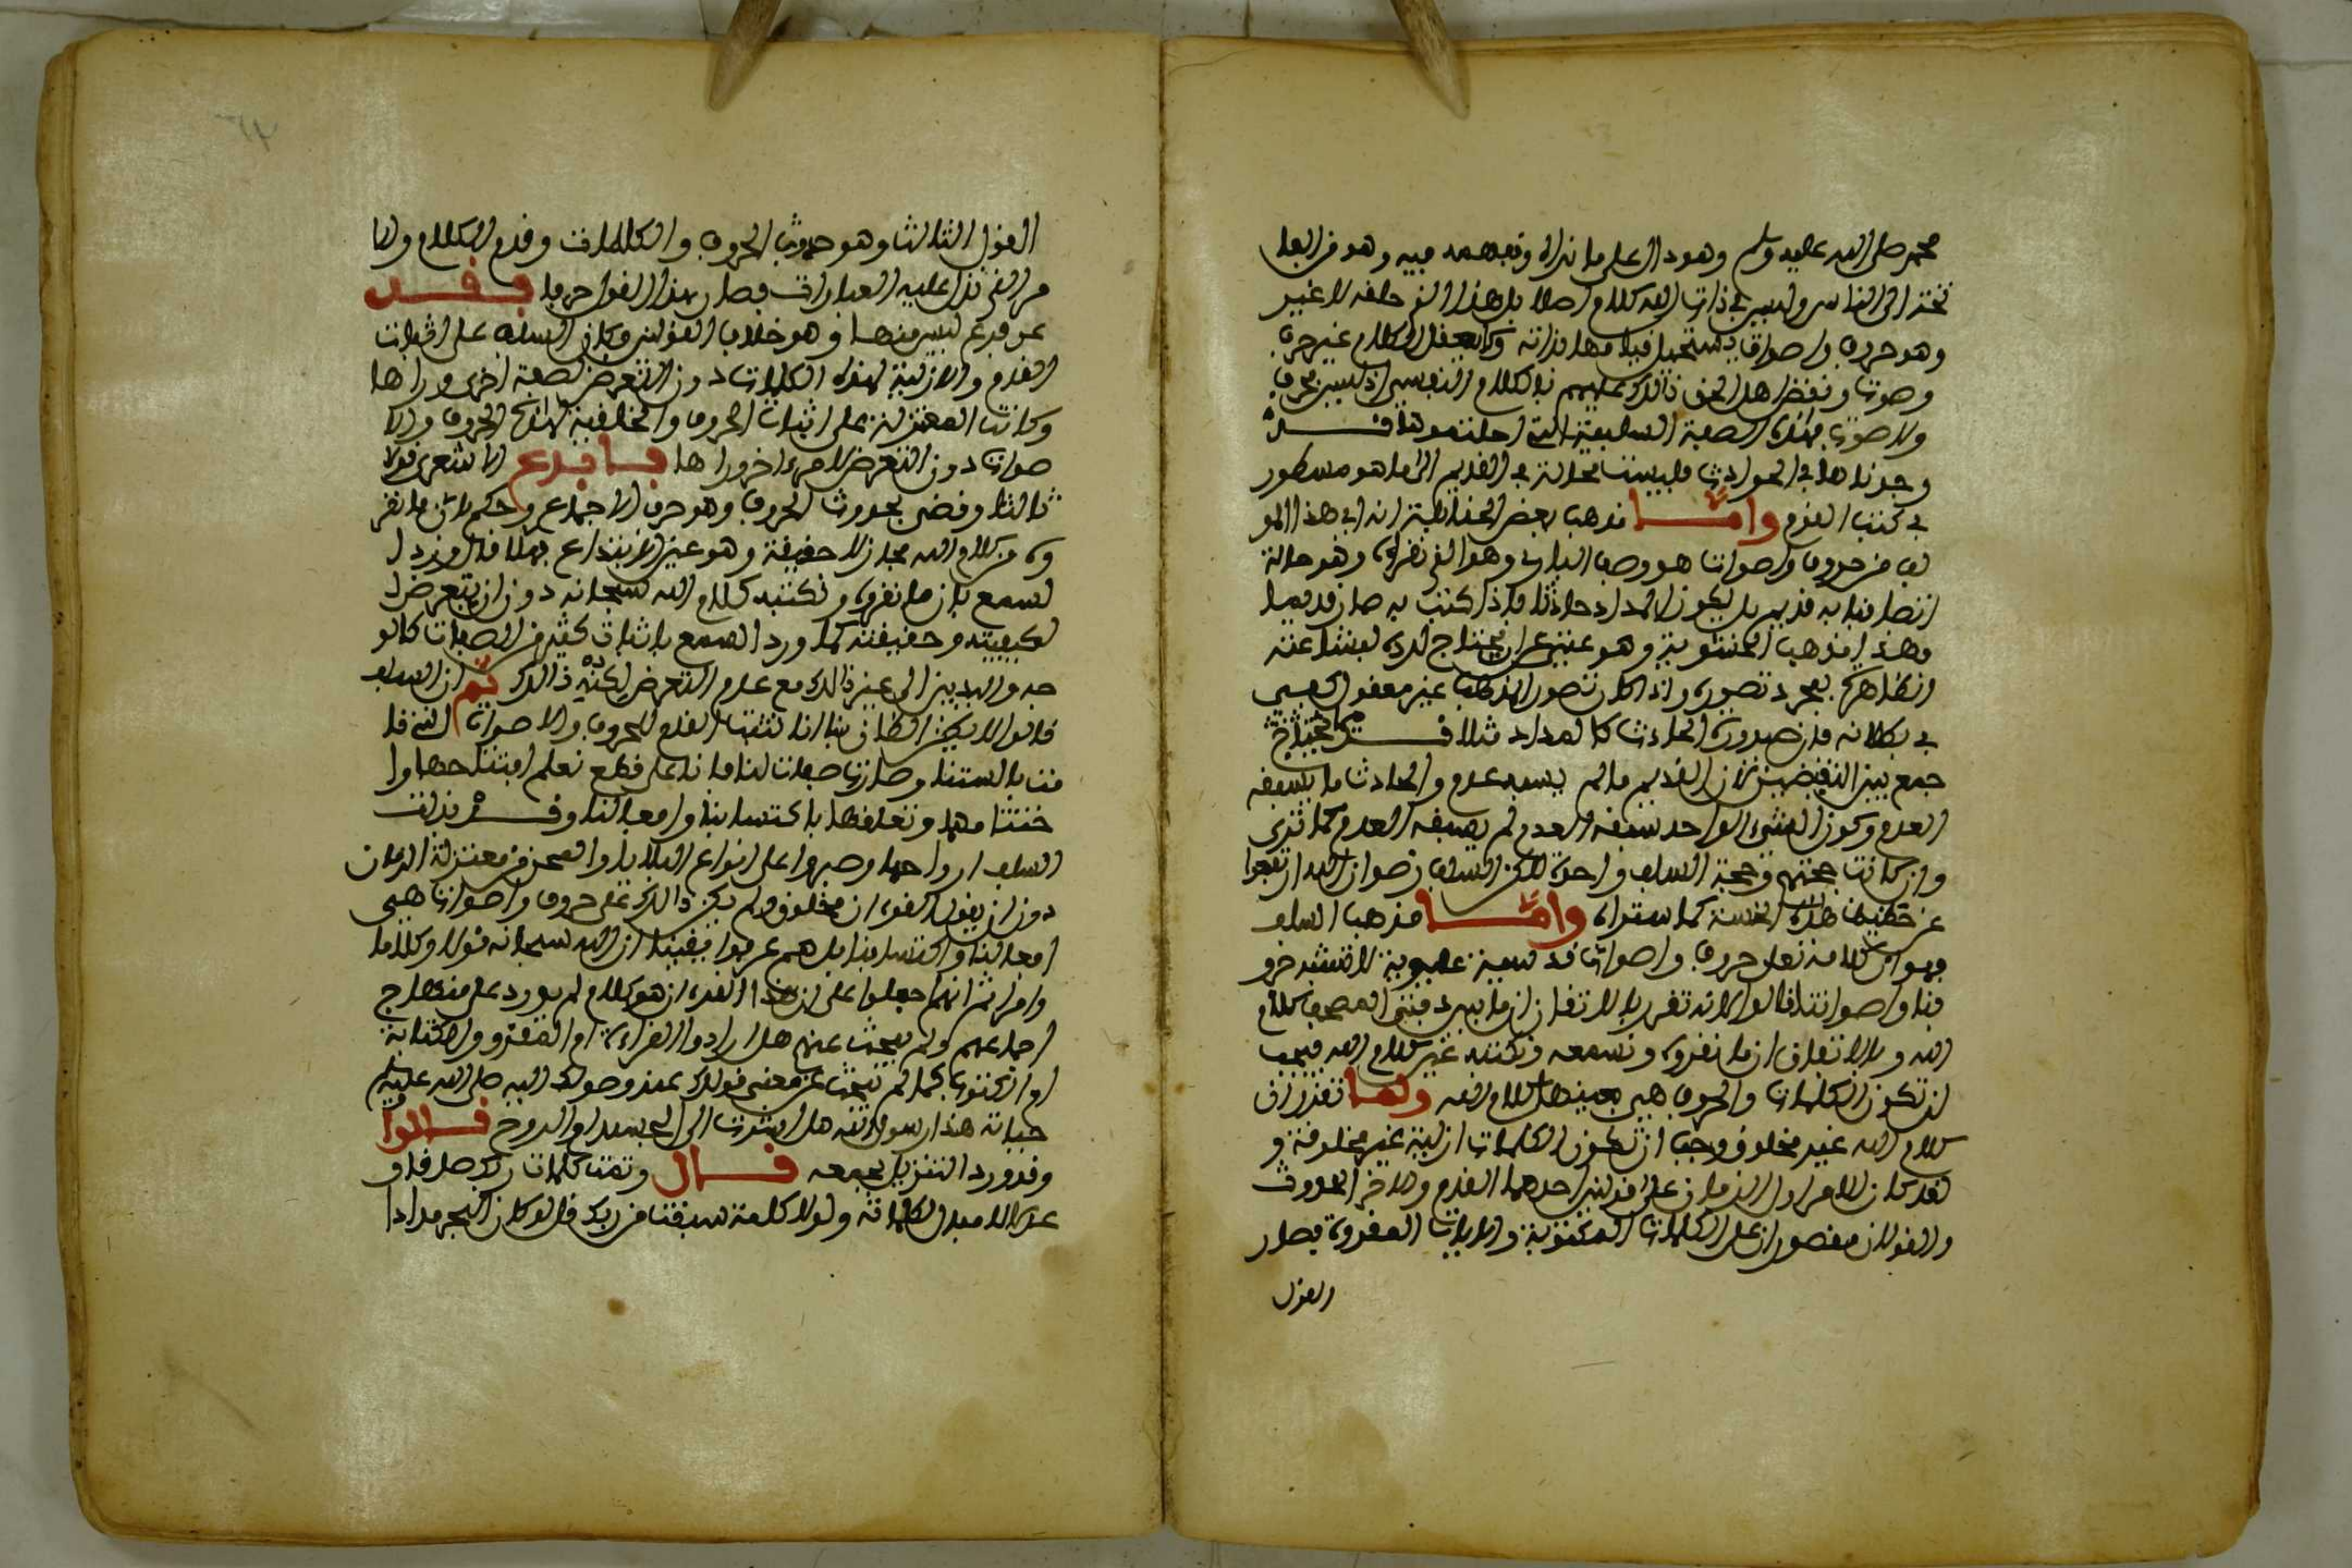 محمد صلى الله عليه وسلم وهو دال على ما نراه ونفهمه فيه وهو من العلم
تختد الى الناس وليس في ذات الله كلام اصلا بل هذا الذي خلقه لا غير
وهو حروف واصوات يستحيل قيامها بذاته ولا يعقل الكلام غير حرف
وصوت ونقض اهل الحق ذالك عليهم بالكلام النفسي اذ ليس بحرف
ولا صوت بهذه الصفة السليقية التي احلتموها قد
وجدناها في الحوادث فليست محالة في القديم الى ما هو مسطور
في كتب القوم واما مذهب بعض الحنابلة انه اي هذا المو
لف من حروف واصوات هو وصف الباري وهو الذي نقراه وهو حالة
اتصافنا به قديم بل يكون المداد حادثا فاذا كتب به صار قديما
وهذا مذهب الحشوية وهو غني عن ان يحتاج لرده لبشاعته
وتظاهره بمجرد تصوره واذا كان تصور المذهب غير معقول كفى
في بطلانه فان صيرورة الحادث كالمداد مثلا قديما
جمع بين النقيضين لان القديم ما لم يسبقه عدم والحادث ما يسبقه
العدم وكون الشيء الواحد سبقه العدم لم يسبقه العدم كما ترى
وان كانت حجتهم وحجة السلف واحدة لاكن السلف رضوان الله ارتفعوا
عن حضيض هذه الخسة كما ستراه واما مذهب السلف
فهو ان كلامه تعلى حروف واصوات قديمة غيبية لا تشبه حرو
فنا واصواتنا قالوا لانه تقرر بالاتفاق ان ما بين دفتي المصحف كلام
الله وبالاتفاق ان ما نقروه ونسمعه ونكتبه غير كلام الله فيجب
ان تكون الكلمات والحروف هي بعينها كلام الله ولما تقرر ان
كلام الله غير مخلوق وجب ان تكون الكلمات ازلية غير مخلوقة و
لقد كان الامر اول الزمان على قولين احدهما القدم والاخر الحدوث
والقولان مقصوران على الكلمات المكتوبة والايات المقروة فصار
القول
القول الثالث وهو حدوث الحروف والكلمات وقدم الكلام والا
مر الذي تدل عليه العبارات فصار هذا القول حرفا فقد
عن قدم ليس منها وهو خلاف القولين وكان السلف على اثبات
القدم والازلية لهذه الكلمات دون التعرض لصفة اخرى وراها
وكانت المعتزلة على اثبات الحروف والخلقية لهذه الحروف والا
صوات دون التعرض لامر اخر وراها فابدع الاشعري قولا
ثالثا وقضى بحدوث الحروف وهو حرق الاجماع وحكم بان ما نقر
وه من كلام الله مجاز لا حقيقة وهو عين الابتداع فهلا قال ورد ا
لسمع بان ما نقروه ونكتبه كلام الله سبحانه دون ان يتعرض ا
لكيفيته وحقيقته كما ورد السمع باثبات كثير من الصفات كالو
جه واليدين الى غير ذالك مع عدم التعرض لكنه ذالك ثم ان السلف
قالوا لا يظن الظان بنا انا نثبت القدم للحروف والاصوات التي قا
مت بالسنتنا وصارت صفات لنا فانا على قطع نعلم افتتاحها وا
ختتامها وتعلقها باكتسابنا وافعالنا وقد بذلت
السلف ارواحها وصبروا على انواع البلايا والمحن من معتزلة الزمان
دون ان يقولوا القرءان مخلوق ولم يكن ذالك على حروف واصوات هي
افعالنا واكتسابنا بل هم عرفوا يقينا ان الله سبحانه قولا وكلاما
وامرا ثم انهم حملوا على ان هذا القرءان هو كلام لم يورد على منهاج
اجماعهم ولم يبحث عنهم هل ارادوا القراءة او المقرو والكتابة
او المكتوب كما لم يبحث عن معنى قولك عند وصولك اليه صلى الله عليه وسلم
حياته هذا رسول الله هل اشرت الى الجسد او الروح قالوا
وقد ورد التنزيل بجمعه قال وتمت كلمات ربك صدقا و
عدلا لا مبدل لكلماته ولولا كلمة سبقت من ربك قل لو كان البحر مدادا